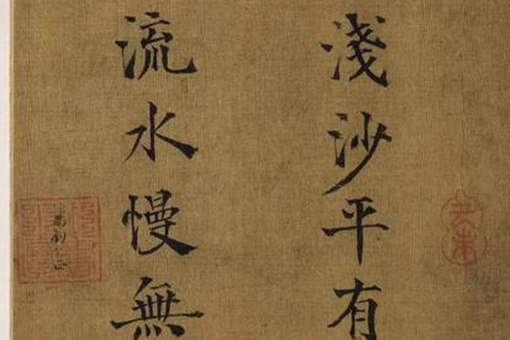 淺沙平有
流水慢無